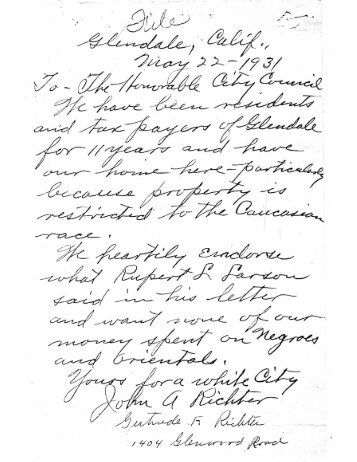 File
Glendale, Calif.,
May 22-1931
To - The Honorable City Council
We have been residents
and tax payers of Glendale
for 11 years and have
our home here - particularly
because property is
restricted to the Caucasian
race.
We heartily endorse
what Rupert L. Larson
said in his letter
and want none of our
money spent on Negroes
and Orientals.
Yours for a white City
John A Richter
Gertrude F. Richter
1404 Glenwood Road